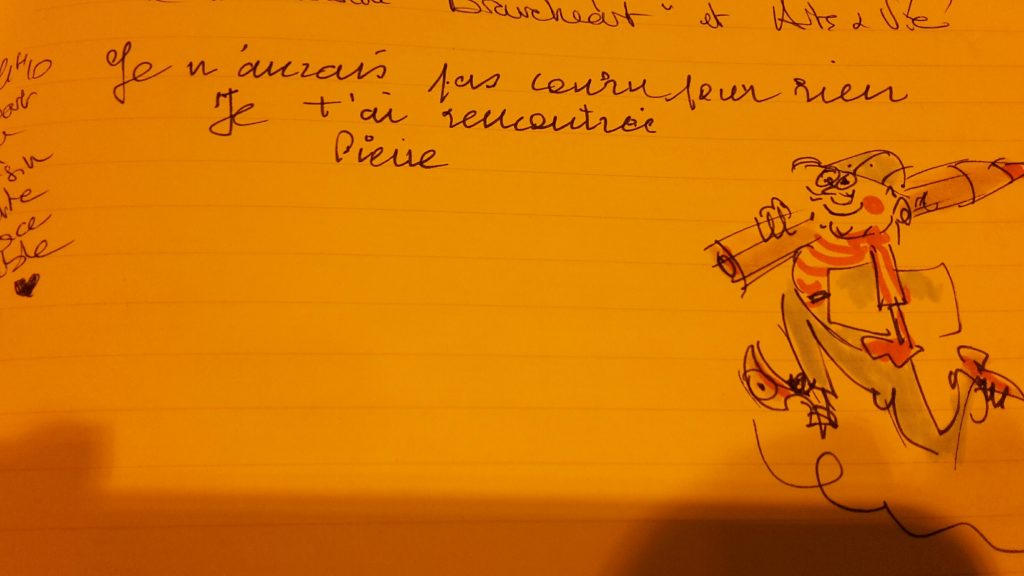 Braveheart" et Arts & Vie
Je n'aurais pas couru pour rien
Je t'ai rencontrée
Pierre